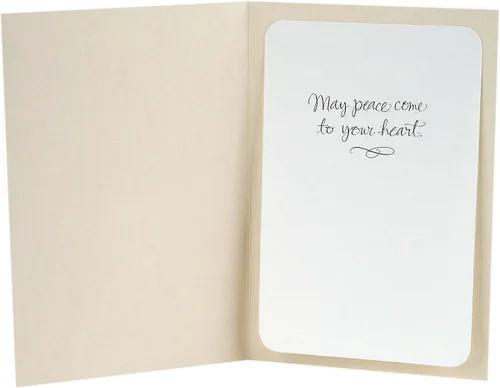 May peace come
to your heart.